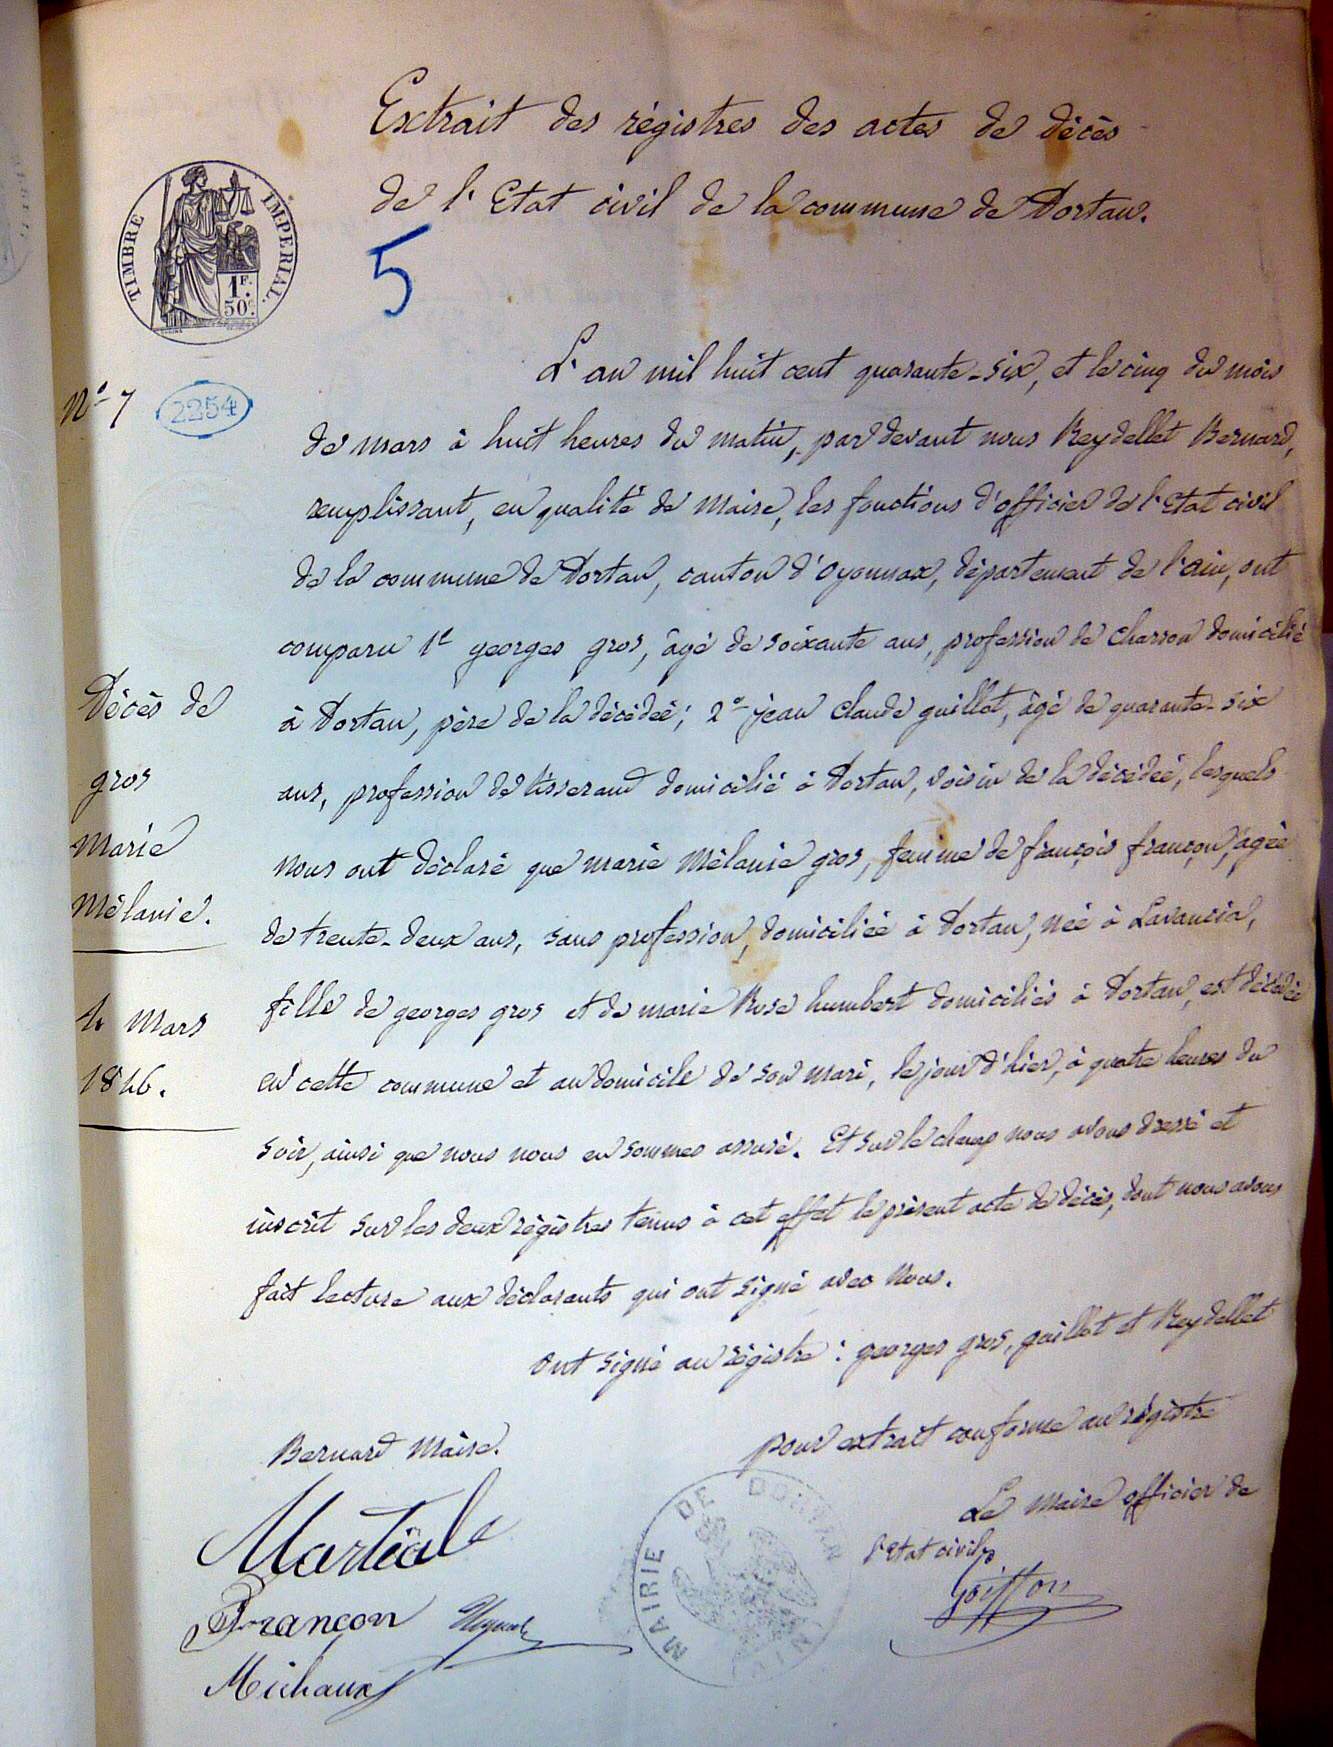 Extrait des régistres des actes de décès
de l'Etat civil de la commune de Dortan.
TIMBRE IMPERIAL.
1F. 50c.
5
Nº 7
2254
L'an mil huit cent quarante-six, et le cinq du mois
de mars à huit heures du matin, par devant nous Reydellet Bernard,
remplissant, en qualité de Maire, les fonctions d'officier de l'Etat civil
de la commune de Dortan, canton d'Oyonnax, département de l'ain, ont
comparu 1º georges gros, âgé de soixante ans, profession de charron domicilié
à Dortan, père de la décédée; 2º jean claude guillet, âgé de quarante-six
ans, profession de tisserand domicilié à Dortan, voisin de la décédée, lesquels
nous ont déclaré que marie Mélanie gros, femme de françois françon, âgée
de trente-deux ans, sans profession, domiciliée à Dortan, née à Lavancia,
fille de georges gros et de marie Rose humbert domiciliés à Dortan, est décédée
en cette commune et au domicile de son mari, le jour d'hier, à quatre heures du
soir, ainsi que nous nous en sommes assuré. Et sur le champ nous avons dressé et
inscrit sur les deux régistres tenus à cet effet le présent acte de décès, dont nous avons
fait lecture aux déclarants qui ont signé avec Nous.
Ont signé au régistre : georges gros, guillet et Reydellet
Bernard Maire.
Décès de
gros
Marie
Mélanie.
4 Mars
1846.
pour extrait conforme au régistre
Le Maire officier de
l'Etat civil,
Goiffon
Martial
Françon
Michaux
MAIRIE DE DORTAN